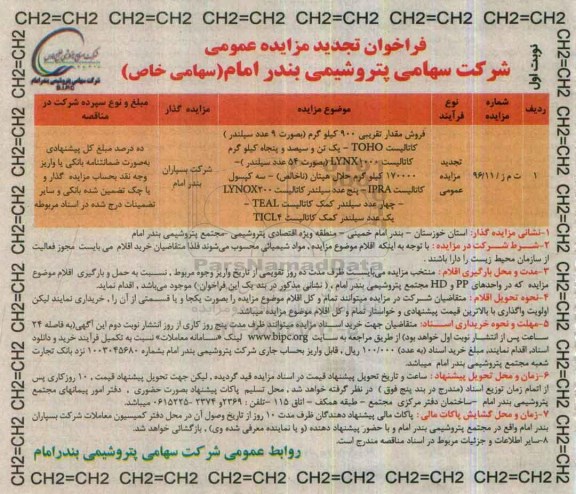 CH2=CH2 CH2=CH2 CH2=CH2 CH2=CH2 CH2=CH2 CH2=CH2 CH2=CH2
فراخوان تجدید مزایده عمومی
شرکت سهامی پتروشیمی بندر امام (سهامی خاص)
نوبت اول
شرکت سهامی پتروشیمی بندر امام
B.I.P.C
ردیف
شماره مزایده
نوع فرآیند
موضوع مزایده
مزایده گذار
مبلغ و نوع سپرده شرکت در مناقصه
۱
ت م ز / ۹۶/۱۱
تجدید مزایده عمومی
فروش مقدار تقریبی ۹۰۰ کیلو گرم (بصورت ۹ عدد سیلندر )
کاتالیست TOHO – یک تن و سیصد و پنجاه کیلو گرم
کاتالیست LYNX۱۰۰۰ (بصورت ۵۴ عدد سیلندر )–
۱۷۰۰۰۰ کیلو گرم حلال هپتان (ناخالص) – سه کپسول
کاتالیست IPRA – پنج عدد سیلندر کاتالیست LYNOX۲۰۰
– چهار عدد سیلندر کمک کاتالیست TEAL –
یک عدد سیلندر کمک کاتالیست TICL۴
شرکت بسپاران بندر امام
ده درصد مبلغ کل پیشنهادی
به‌صورت ضمانتنامه بانکی یا واریز
وجه نقد بحساب مزایده گذار و
یا چک تضمین شده بانکی و سایر
تضمینات درج شده در اسناد مربوطه
۱-نشانی مزایده گذار: استان خوزستان – بندر امام خمینی – منطقه ویژه اقتصادی پتروشیمی – مجتمع پتروشیمی بندر امام
۲-شرط شرکت در مزایده : با توجه به اینکه اقلام موضوع مزایده، مواد شیمیائی محسوب می‌شوند فلذا متقاضیان خرید اقلام می بایست مجوز فعالیت
از سازمان محیط زیست را دارا باشند.
۳-مدت و محل بارگیری اقلام : منتخب مزایده می‌بایست ظرف مدت ده روز تقویمی از تاریخ واریز وجوه مربوط ، نسبت به حمل و بارگیری اقلام موضوع
مزایده که در واحدهای PP و HD مجتمع پتروشیمی بندر امام ، ( نشانی مذکور در بند یک این فراخوان) موجود می‌باشد ، اقدام نماید.
۴-نحوه تحویل اقلام : متقاضیان شرکت در مزایده میتوانند تمام و کل اقلام موضوع مزایده را بصورت یکجا و یا قسمتی از آن را ، خریداری نمایند لیکن
اولویت واگذاری با بالاترین قیمت پیشنهادی و خواستار تمام و کل اقلام موضوع مزایده میباشد
۵-مهلت و نحوه خریداری اسناد: متقاضیان جهت خرید اسناد مزایده میتوانند ظرف مدت پنج روز کاری از روز انتشار نوبت دوم این آگهی(به فاصله ۲۴
ساعت پس از انتشار نوبت اول خواهد بود) از طریق مراجعه به سایت www.bipc.org لینک «سامانه معاملات» نسبت به تکمیل فرآیند خرید و دانلود
اسناد، اقدام نمایند. مبلغ خرید اسناد (به عدد) ۱۰۰/۰۰۰ ریال ، قابل واریز بحساب جاری شرکت پتروشیمی بندر امام بشماره ۱۰۰۳۰۴۵۶۸۰ نزد بانک تجارت
شعبه مجتمع پتروشیمی بندر امام میباشد.
۶-زمان و محل تحویل پیشنهاد : ساعت و تاریخ تحویل پیشنهاد قیمت در اسناد مزایده قید گردیده ، لیکن جهت تحویل پیشنهاد قیمت ، ۱۰ روزکاری پس
از اتمام زمان توزیع اسناد (مندرج در بند پنج فوق ) در نظر گرفته خواهد شد . محل تسلیم پاکات پیشنهاد بصورت حضوری ، دفتر امور پیمانهای مجتمع
پتروشیمی بندر امام –ساختمان دفتر مرکزی مجتمع – طبقه همکف – اتاق ۱۱۵ –تلفن : ۲۳۶۹و ۲۳۷۴ -۰۶۱۵۲۲۵ میباشد.
۷-زمان و محل گشایش پاکات مالی : پاکات مالی پیشنهاد دهندگان ظرف مدت ۱۰ روز از تاریخ وصول آن در محل دفتر کمیسیون معاملات شرکت بسپاران
بندر امام واقع در مجتمع پتروشیمی بندر امام و با حضور پیشنهاد دهنده (و یا نماینده معرفی شده وی) ، بازگشائی خواهد شد.
۸-سایر اطلاعات و جزئیات مربوط در اسناد مناقصه مندرج است.
روابط عمومی شرکت سهامی پتروشیمی بندرامام
CH2=CH2 CH2=CH2 CH2=CH2 CH2=CH2 CH2=CH2 CH2=CH2 CH2=CH2
ParsNamadData